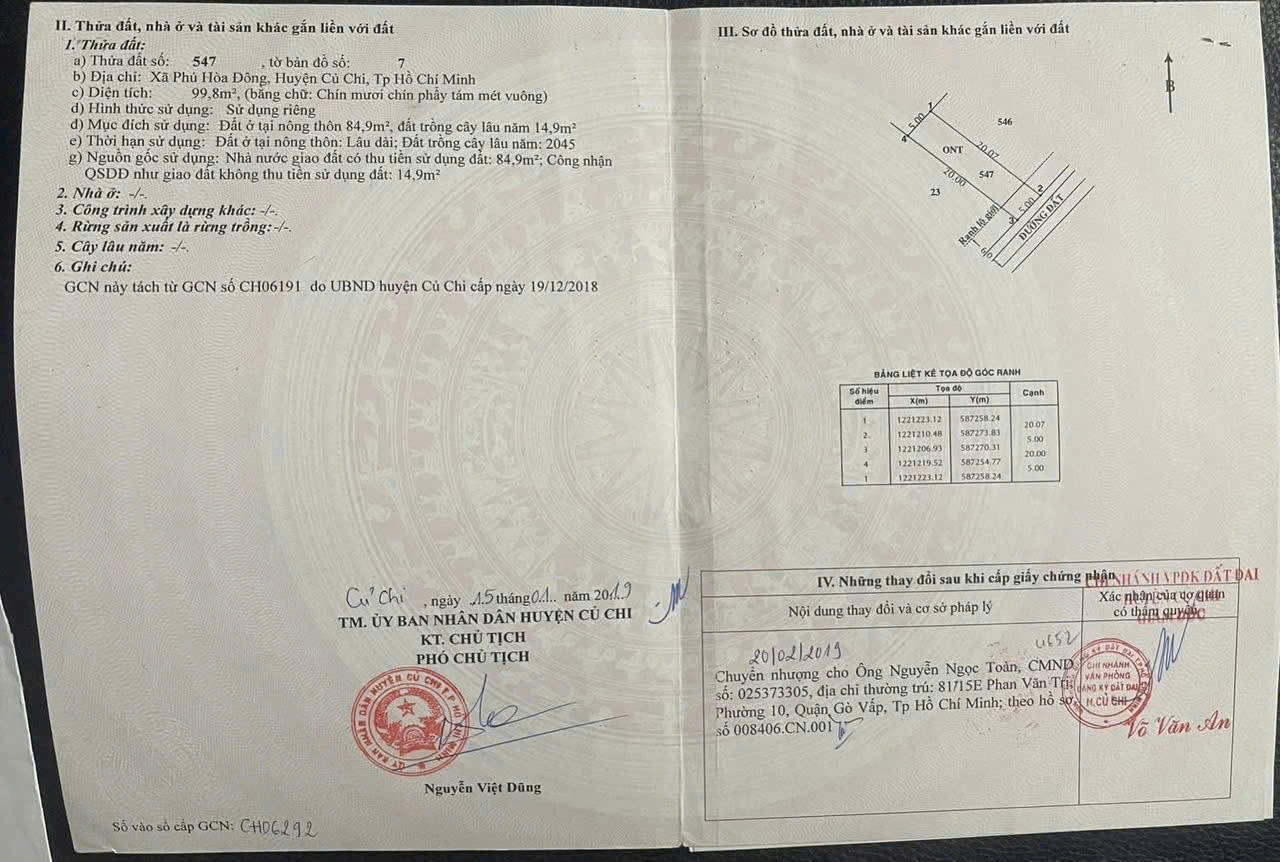 II. Thửa đất, nhà ở và tài sản khác gắn liền với đất
1. Thửa đất:
a) Thửa đất số: 547 , tờ bản đồ số: 7
b) Địa chỉ: Xã Phú Hòa Đông, Huyện Củ Chi, Tp Hồ Chí Minh
c) Diện tích: 99,8m², (bằng chữ: Chín mươi chín phẩy tám mét vuông)
d) Hình thức sử dụng: Sử dụng riêng
đ) Mục đích sử dụng: Đất ở tại nông thôn 84,9m², đất trồng cây lâu năm 14,9m²
e) Thời hạn sử dụng: Đất ở tại nông thôn: Lâu dài; Đất trồng cây lâu năm: 2045
g) Nguồn gốc sử dụng: Nhà nước giao đất có thu tiền sử dụng đất: 84,9m²; Công nhận
QSDĐ như giao đất không thu tiền sử dụng đất: 14,9m²
2. Nhà ở: -/-.
3. Công trình xây dựng khác: -/-.
4. Rừng sản xuất là rừng trồng: -/-.
5. Cây lâu năm: -/-.
6. Ghi chú:
GCN này tách từ GCN số CH06191 do UBND huyện Củ Chi cấp ngày 19/12/2018
Củ Chi , ngày 15 tháng 01 năm 2019
TM. ỦY BAN NHÂN DÂN HUYỆN CỦ CHI
KT. CHỦ TỊCH
PHÓ CHỦ TỊCH
Nguyễn Việt Dũng
Số vào sổ cấp GCN: CH06292
III. Sơ đồ thửa đất, nhà ở và tài sản khác gắn liền với đất
B
1
5.00
546
4
ONT
20.07
547
20.00
23
2
5.00
3
Ranh lộ giới
ĐƯỜNG ĐẤT
6.0
BẢNG LIỆT KÊ TỌA ĐỘ GÓC RANH
Số hiệu điểm Tọa độ Cạnh
X(m) Y(m)
1 1221223.12 587258.24
20.07
2 1221210.48 587273.83
5.00
3 1221206.93 587270.31
20.00
4 1221219.52 587254.77
5.00
1 1221223.12 587258.24
IV. Những thay đổi sau khi cấp giấy chứng nhận
CHI NHÁNH VPĐK ĐẤT ĐAI
Nội dung thay đổi và cơ sở pháp lý
Xác nhận của cơ quan
có thẩm quyền
GIÁM ĐỐC
20/02/2019 4652
Chuyển nhượng cho Ông Nguyễn Ngọc Toản, CMND
số: 025373305, địa chỉ thường trú: 81/15E Phan Văn Trị,
Phường 10, Quận Gò Vấp, Tp Hồ Chí Minh; theo hồ sơ
số 008406.CN.001
CHI NHÁNH
VĂN PHÒNG
ĐĂNG KÝ ĐẤT ĐAI
H.CỦ CHI
Võ Văn An